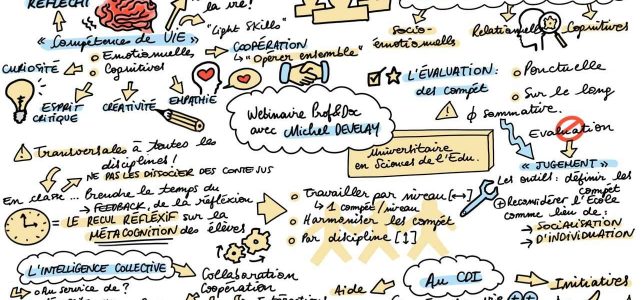 RÉFLÉCHI
la vie!
"Light Skills"
« Compétence de VIE »
Émotionnelles
Cognitives
CURIOSITÉ
ESPRIT
CRITIQUE
CRÉATIVITÉ
EMPATHIE
COOPÉRATION
↳ "Opérer ensemble"
Socio-
émotionnelles
Relationnelles
Cognitives
L'ÉVALUATION:
des compét
Ponctuelle
Sur le long
∅ sommative.
Evaluation
« JUGEMENT »
Webinaire Prof&Doc
avec Michel DEVELAY
Universitaire
en Sciences de l'Edu.
Transversales à toutes les
disciplines!
NE PAS LES DISSOCIER DES CONTENUS
En classe... Prendre le temps du
→ FEEDBACK, de la réflexion
= LE RECUL RÉFLEXIF sur la
MÉTACOGNITION des élèves
Travailler par niveau [↔]
↳ 1 compét/niveau
Harmoniser les compét
Par discipline [1]
Les outils: définir les
compét
+ Reconsidérer l'École
comme lieu de:
→ SOCIALISATION
→ D'INDIVIDUATION
L'INTELLIGENCE COLLECTIVE
→ Au service de?
Collaboration
Coopération
Interactions
Au CDI
Aide
Initiatives